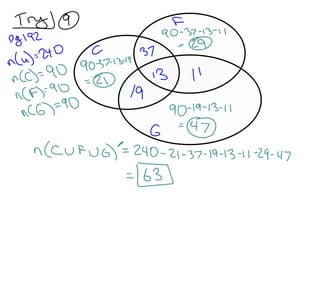 Try 9
pg192
n(u)=240
n(C)=90
n(F)=90
n(G)=90
F
90-37-13-11
=29
C
37
90-37-13-19
=21
13
11
19
90-19-13-11
=47
G
n(CUFUG)'=240-21-37-19-13-11-29-47
=63